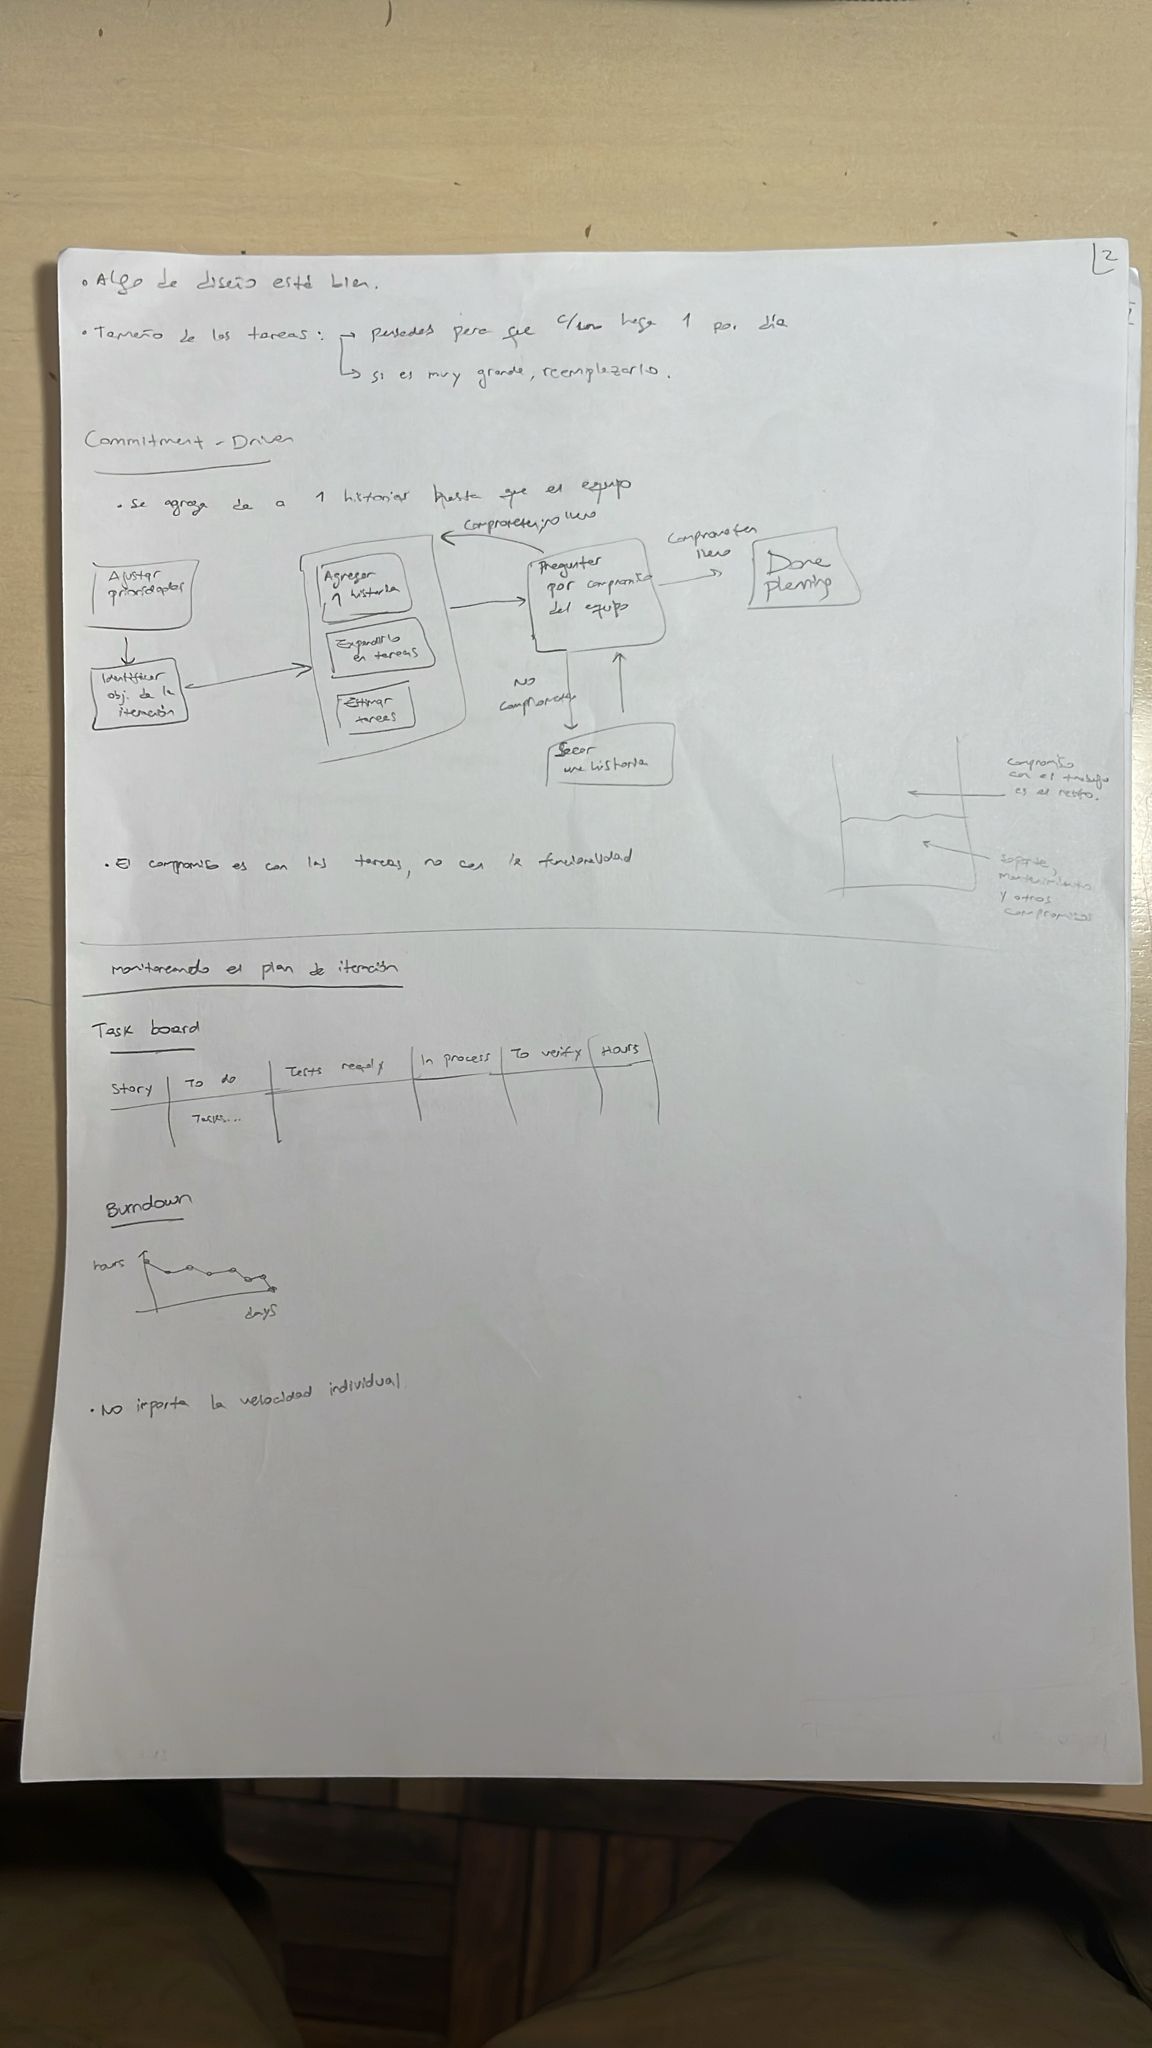 2
• Algo de diseño está bien.
• Tamaño de las tareas: → pensadas para que c/uno haga 1 por día
↳ si es muy grande, reemplazarlo.
Commitment - Driven
• Se agrega de a 1 historias hasta que el equipo
Ajustar prioridades
Identificar
obj. de la
iteración
Agregar
1 historia
Expandirlo
en tareas
Estimar
tareas
Preguntar
por compromiso
del equipo
Comprometen,
lleno
Done
planning
No
comprometen
Sacar
una historia
compromiso
con el trabajo
es el resto.
soporte,
mantenimiento
y otros
compromisos
• El compromiso es con las tareas, no con la funcionalidad
Monitoreando el plan de iteración
Task board
Story | To do | Tests ready | In process | To verify | Hours
Tasks...
Burndown
hours
days
• No importa la velocidad individual.